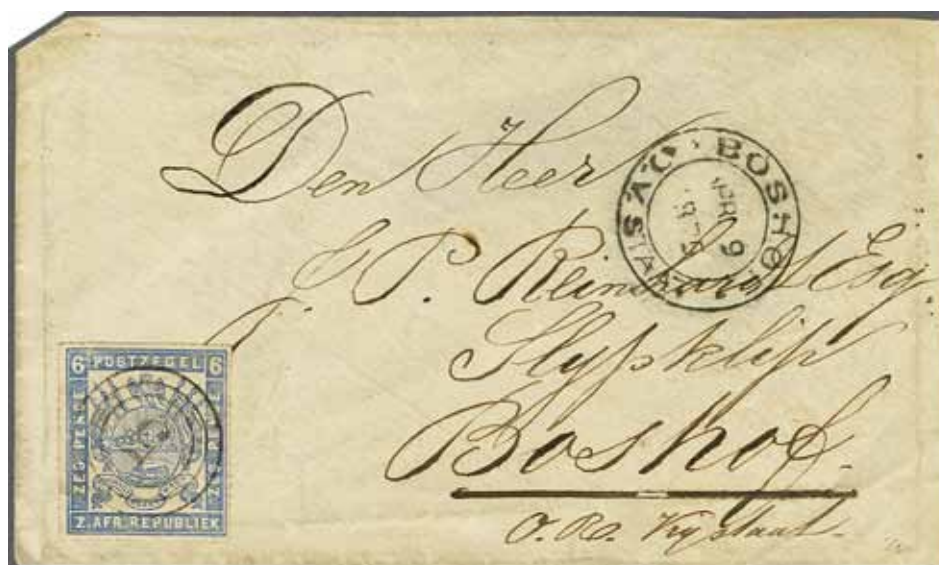 Den Heer
P. Reinhardt Esq.
Slypklip
Boshof.
O. R. Vrystaat.
BOSHOF
APR 9
6 POSTZEGEL 6
ZES PENCE
Z. AFR. REPUBLIEK